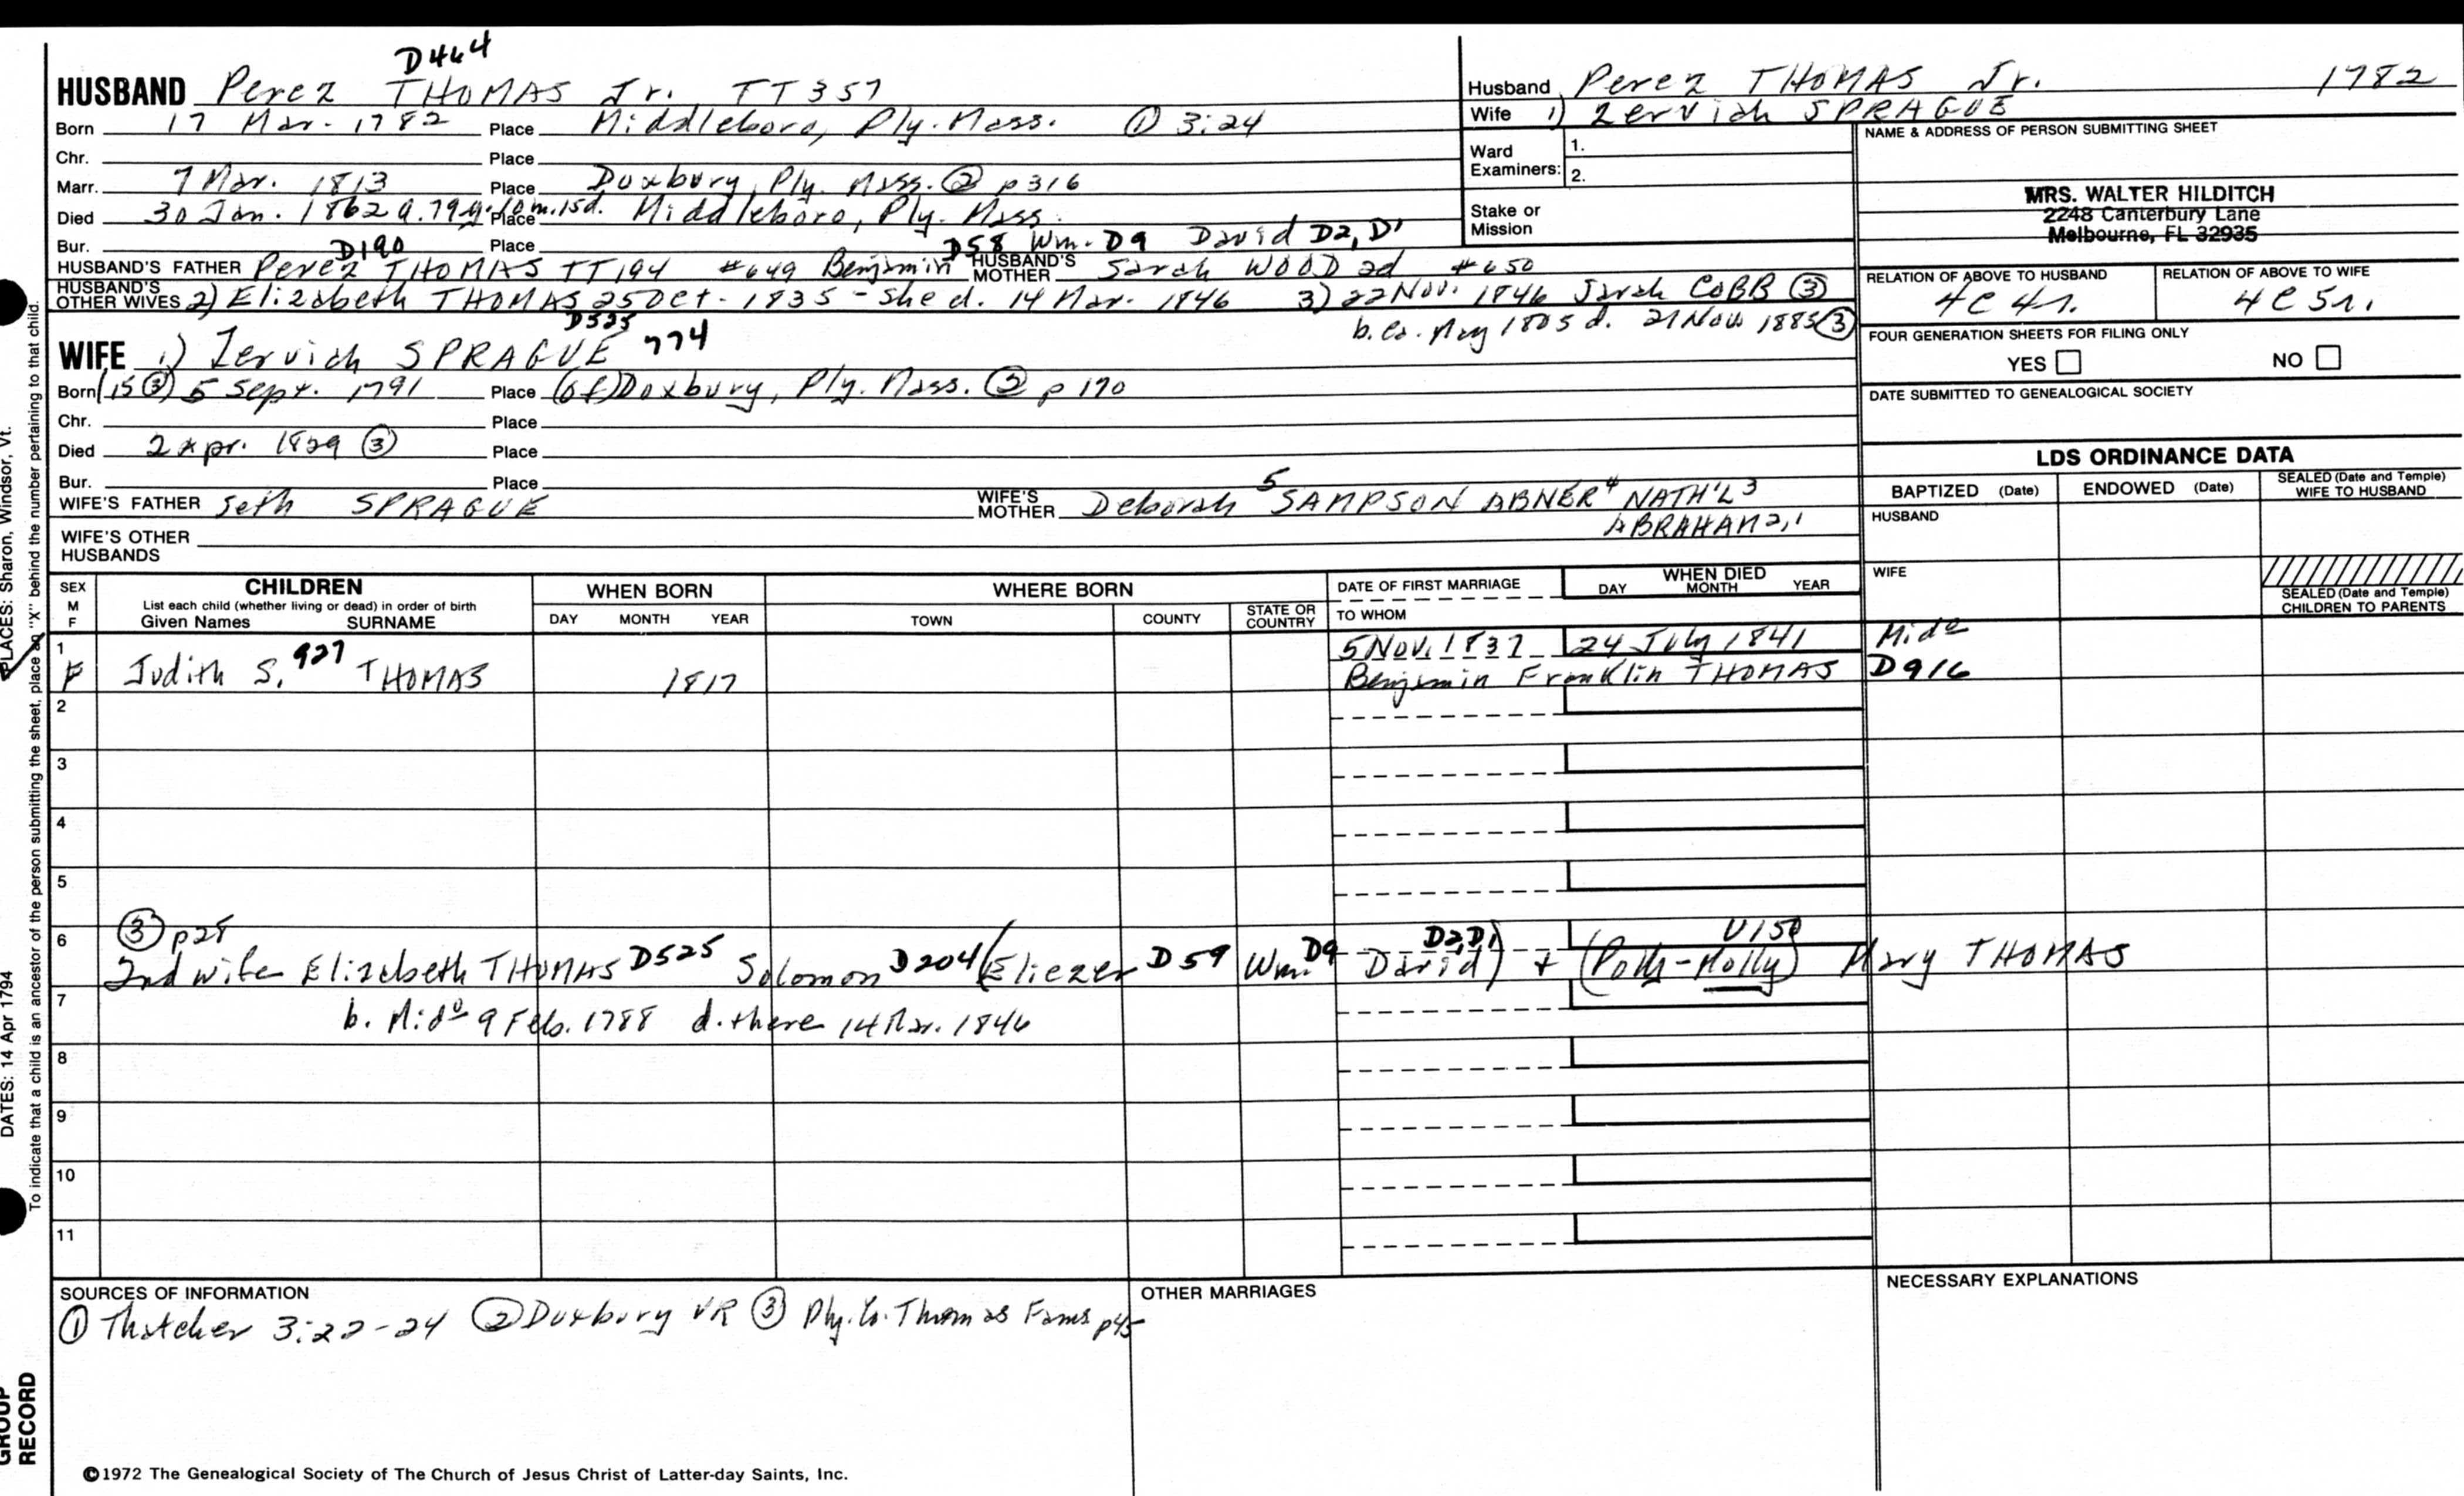 D464
HUSBAND Perez THOMAS Jr. TT357
Born 17 Mar. 1782 Place Middleboro, Ply. Mass. ① 3:24
Chr. Place
Marr. 7 Mar. 1813 Place Duxbury, Ply. Mass. ② p316
Died 30 Jan. 1862 a. 79y. 10m. 15d. Place Middleboro, Ply. Mass.
Bur. Place
D190 D58 Wm. D9 David D2, D1
HUSBAND'S FATHER Perez THOMAS TT194 #649 Benjamin HUSBAND'S MOTHER Sarah WOOD 2d #650
HUSBAND'S OTHER WIVES 2) Elizabeth THOMAS 25 Oct. 1835 - She d. 14 Mar. 1846 3) 22 Nov. 1846 Sarah COBB ③
D525 b. ca. May 1805 d. 21 Nov 1885 ③
WIFE 1) Zervich SPRAGUE 774
Born (15 ③) 5 Sept. 1791 Place (of) Duxbury, Ply. Mass. ② p170
Chr. Place
Died 2 Apr. 1829 ③ Place
Bur. Place
WIFE'S FATHER Seth SPRAGUE WIFE'S MOTHER Deborah 5 SAMPSON ABNER 4 NATH'L 3
ABRAHAM 2,1
WIFE'S OTHER HUSBANDS
Husband Perez THOMAS Jr. 1782
Wife 1) Zervich SPRAGUE
Ward Examiners: 1.
2.
Stake or Mission
NAME & ADDRESS OF PERSON SUBMITTING SHEET
MRS. WALTER HILDITCH
2248 Canterbury Lane
Melbourne, FL 32935
RELATION OF ABOVE TO HUSBAND RELATION OF ABOVE TO WIFE
4C4r. 4C5r.
FOUR GENERATION SHEETS FOR FILING ONLY
YES NO
DATE SUBMITTED TO GENEALOGICAL SOCIETY
LDS ORDINANCE DATA
BAPTIZED (Date) ENDOWED (Date) SEALED (Date and Temple) WIFE TO HUSBAND
HUSBAND
WIFE
SEALED (Date and Temple) CHILDREN TO PARENTS
SEX M F
CHILDREN
List each child (whether living or dead) in order of birth
Given Names SURNAME
WHEN BORN
DAY MONTH YEAR
WHERE BORN
TOWN COUNTY STATE OR COUNTRY
DATE OF FIRST MARRIAGE
TO WHOM
WHEN DIED
DAY MONTH YEAR
1 5 Nov. 1837 24 July 1841 Mido
F Judith S. 927 THOMAS 1817 Benjamin Franklin THOMAS D916
2
3
4
5
6 ③ p28 D2, D1 U150
2nd wife Elizabeth THOMAS D525 Solomon D204 (Eliezer D59 Wm. D9 David) + (Polly-Molly) Mary THOMAS
7 b. Mido 9 Feb. 1788 d. there 14 Mar. 1846
8
9
10
11
SOURCES OF INFORMATION
① Thatcher 3:22-24 ② Duxbury VR ③ Ply. Co. Thomas Fams p45
OTHER MARRIAGES
NECESSARY EXPLANATIONS
©1972 The Genealogical Society of The Church of Jesus Christ of Latter-day Saints, Inc.
PLACES: Sharon, Windsor, Vt.
DATES: 14 Apr 1794
To indicate that a child is an ancestor of the person submitting the sheet, place an "X" behind the number pertaining to that child.
GROUP
RECORD